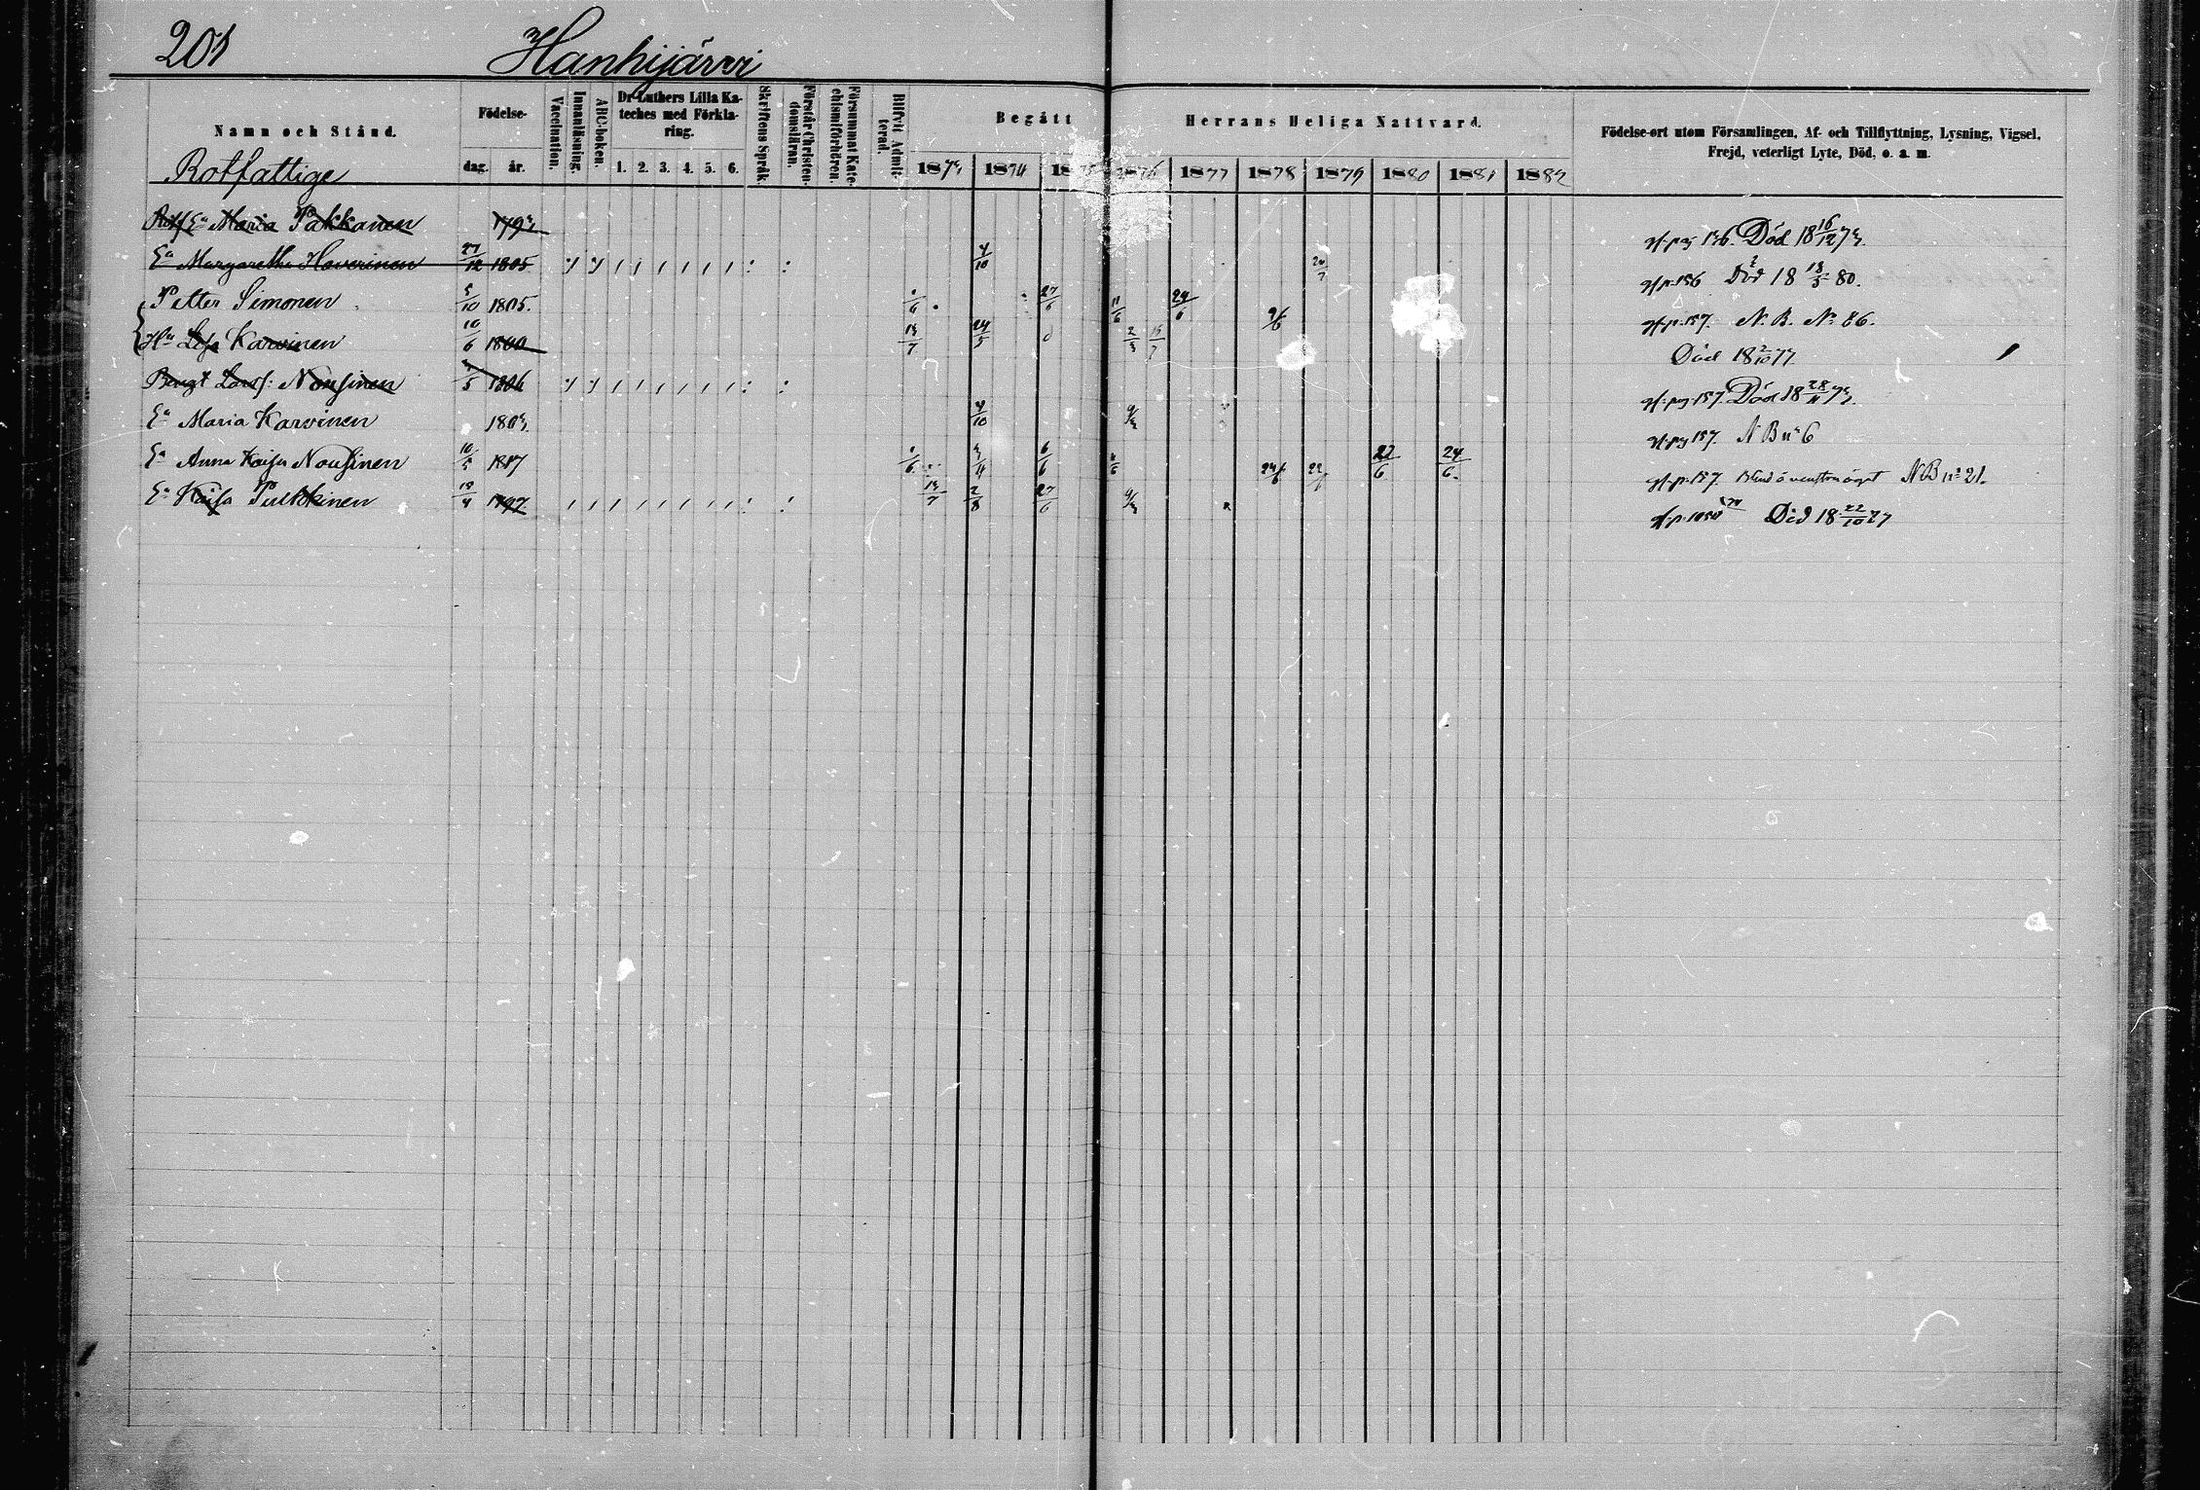 201 Hanhijärvi
Namn och Stånd. Födelse- dag. år. Vaccination. Innanläsning. ABC-boken. Dr Luthers Lilla Kateches med Förklaring. 1. 2. 3. 4. 5. 6. Skriftens Språk. Förstår Christendomsläran. Försummat Katechismiförhören. Blifvit Admitterad.
Begått Herrans Heliga Nattvard.
1873 1874 1875 1876 1877 1878 1879 1880 1881 1882
Födelse-ort utom Församlingen, Af- och Tillflyttning, Lysning, Vigsel,
Frejd, veterligt Lyte, Död, o. a. m.
Rotfattige
Eª Maria Pakkanen 1793 136. Död 18 16/12 73.
Eª Margaretha Haverinen 27/12 1805 4/10 p. 156 Död 18 13/3 80.
Petter Simonen 5/10 1805. 27/6 11/6 24/6 9/6 p. 157. N. B. No 86.
Hu Lisa Karvinen 10/6 1800 13/7 24/5 2/3 15/7 Död 18 2/10 77
Bengt Larsf: Nousinen /5 1806 157. Död 18 28/11 73.
Eª Maria Karvinen 1803. 4/10 9/3 157. N B no 6
Eª Anna Kaisa Nousinen 10/5 1817 6/6 22/6 24/6. p. 157. Blind å venstra ögat N B no 21.
Eª Kaisa Pulkkinen 19/4 1797. 13/7 2/8 27/6 9/3 p. 1050 Död 18 22/10 77